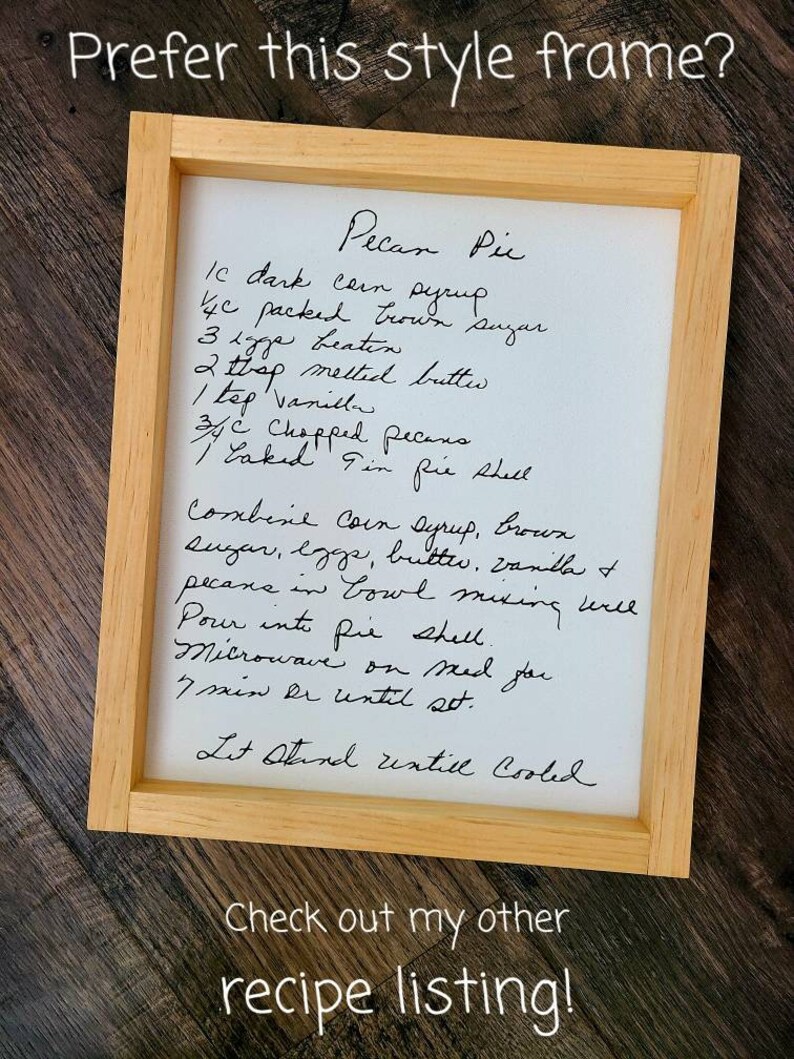 Prefer this style frame?
Pecan Pie
1c dark corn syrup
1/4c packed brown sugar
3 eggs beaten
2 tbsp melted butter
1 tsp vanilla
3/4c chopped pecans
1 baked 9 in pie shell
Combine corn syrup, brown
sugar, eggs, butter, vanilla &
pecans in bowl mixing well
Pour into pie shell.
Microwave on med for
7 min or until set.
Let stand untill cooled
Check out my other
recipe listing!